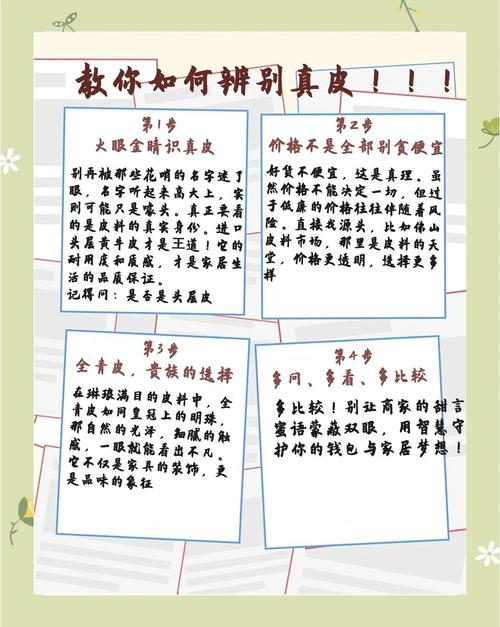 教你如何辨别真皮！！！
第1步
火眼金睛识真皮
别再被那些花哨的名字迷了
眼，名字听起来高大上，实
则可能只是噱头。真正要看
的是皮料的真实身份。进口
头层黄牛皮才是王道！它的
耐用度和质感，才是家居生
活的品质保证。
记得问：是否是头层皮
第2步
价格不是全部别贪便宜
好货不便宜，这是真理。虽
然价格不能决定一切，但过
于低廉的价格往往伴随着风
险。直接找源头，比如佛山
皮料市场，那里是皮料的天
堂，价格更透明，选择更多
样
第3步
全青皮，贵族的选择
在琳琅满目的皮料中，全
青皮如同皇冠上的明珠，
那自然的光泽，细腻的触
感，一眼就能看出不凡。
它不仅是家具的装饰，更
是品味的象征
第4步
多问、多看、多比较
多比较！别让商家的甜言
蜜语蒙蔽双眼，用智慧守
护你的钱包与家居梦想！